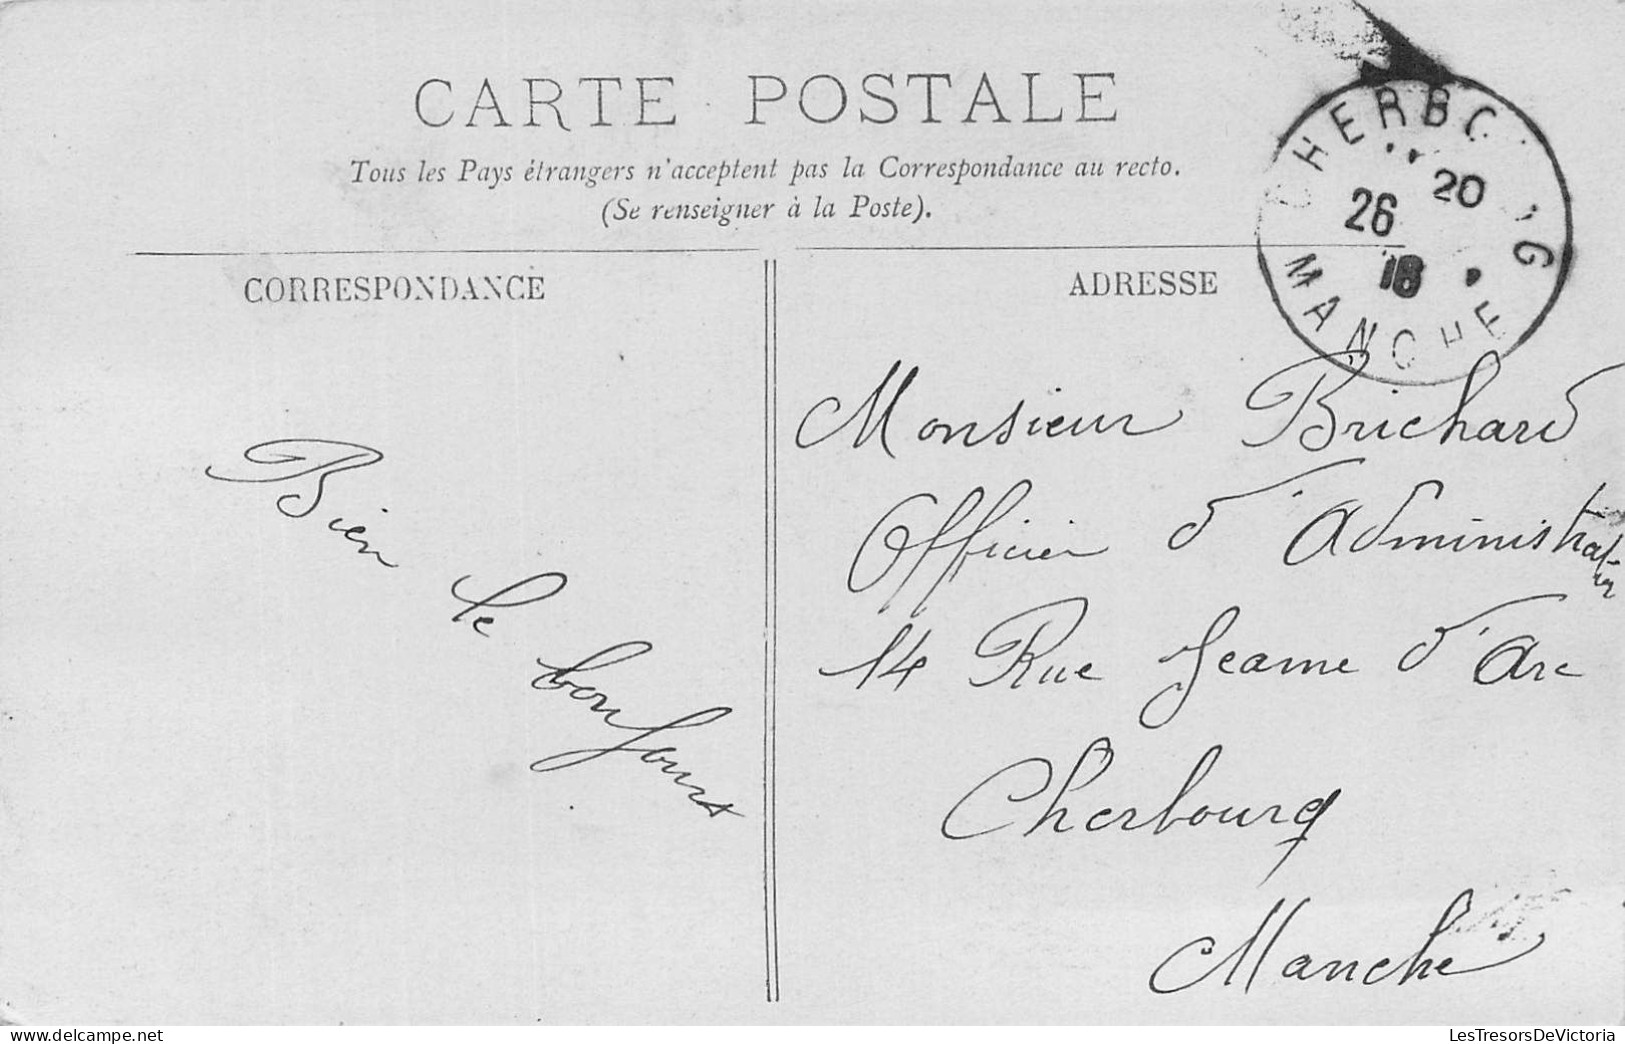 CARTE POSTALE
Tous les Pays étrangers n'acceptent pas la Correspondance au recto.
(Se renseigner à la Poste).
CORRESPONDANCE
ADRESSE
CHERBO NG
20
26
18
MANCHE
Bien le bonjour
Monsieur Brichard
Officier d'Administration
14 Rue Jeanne d'Arc
Cherbourg
Manche
www.delcampe.net
LesTresorsDeVictoria